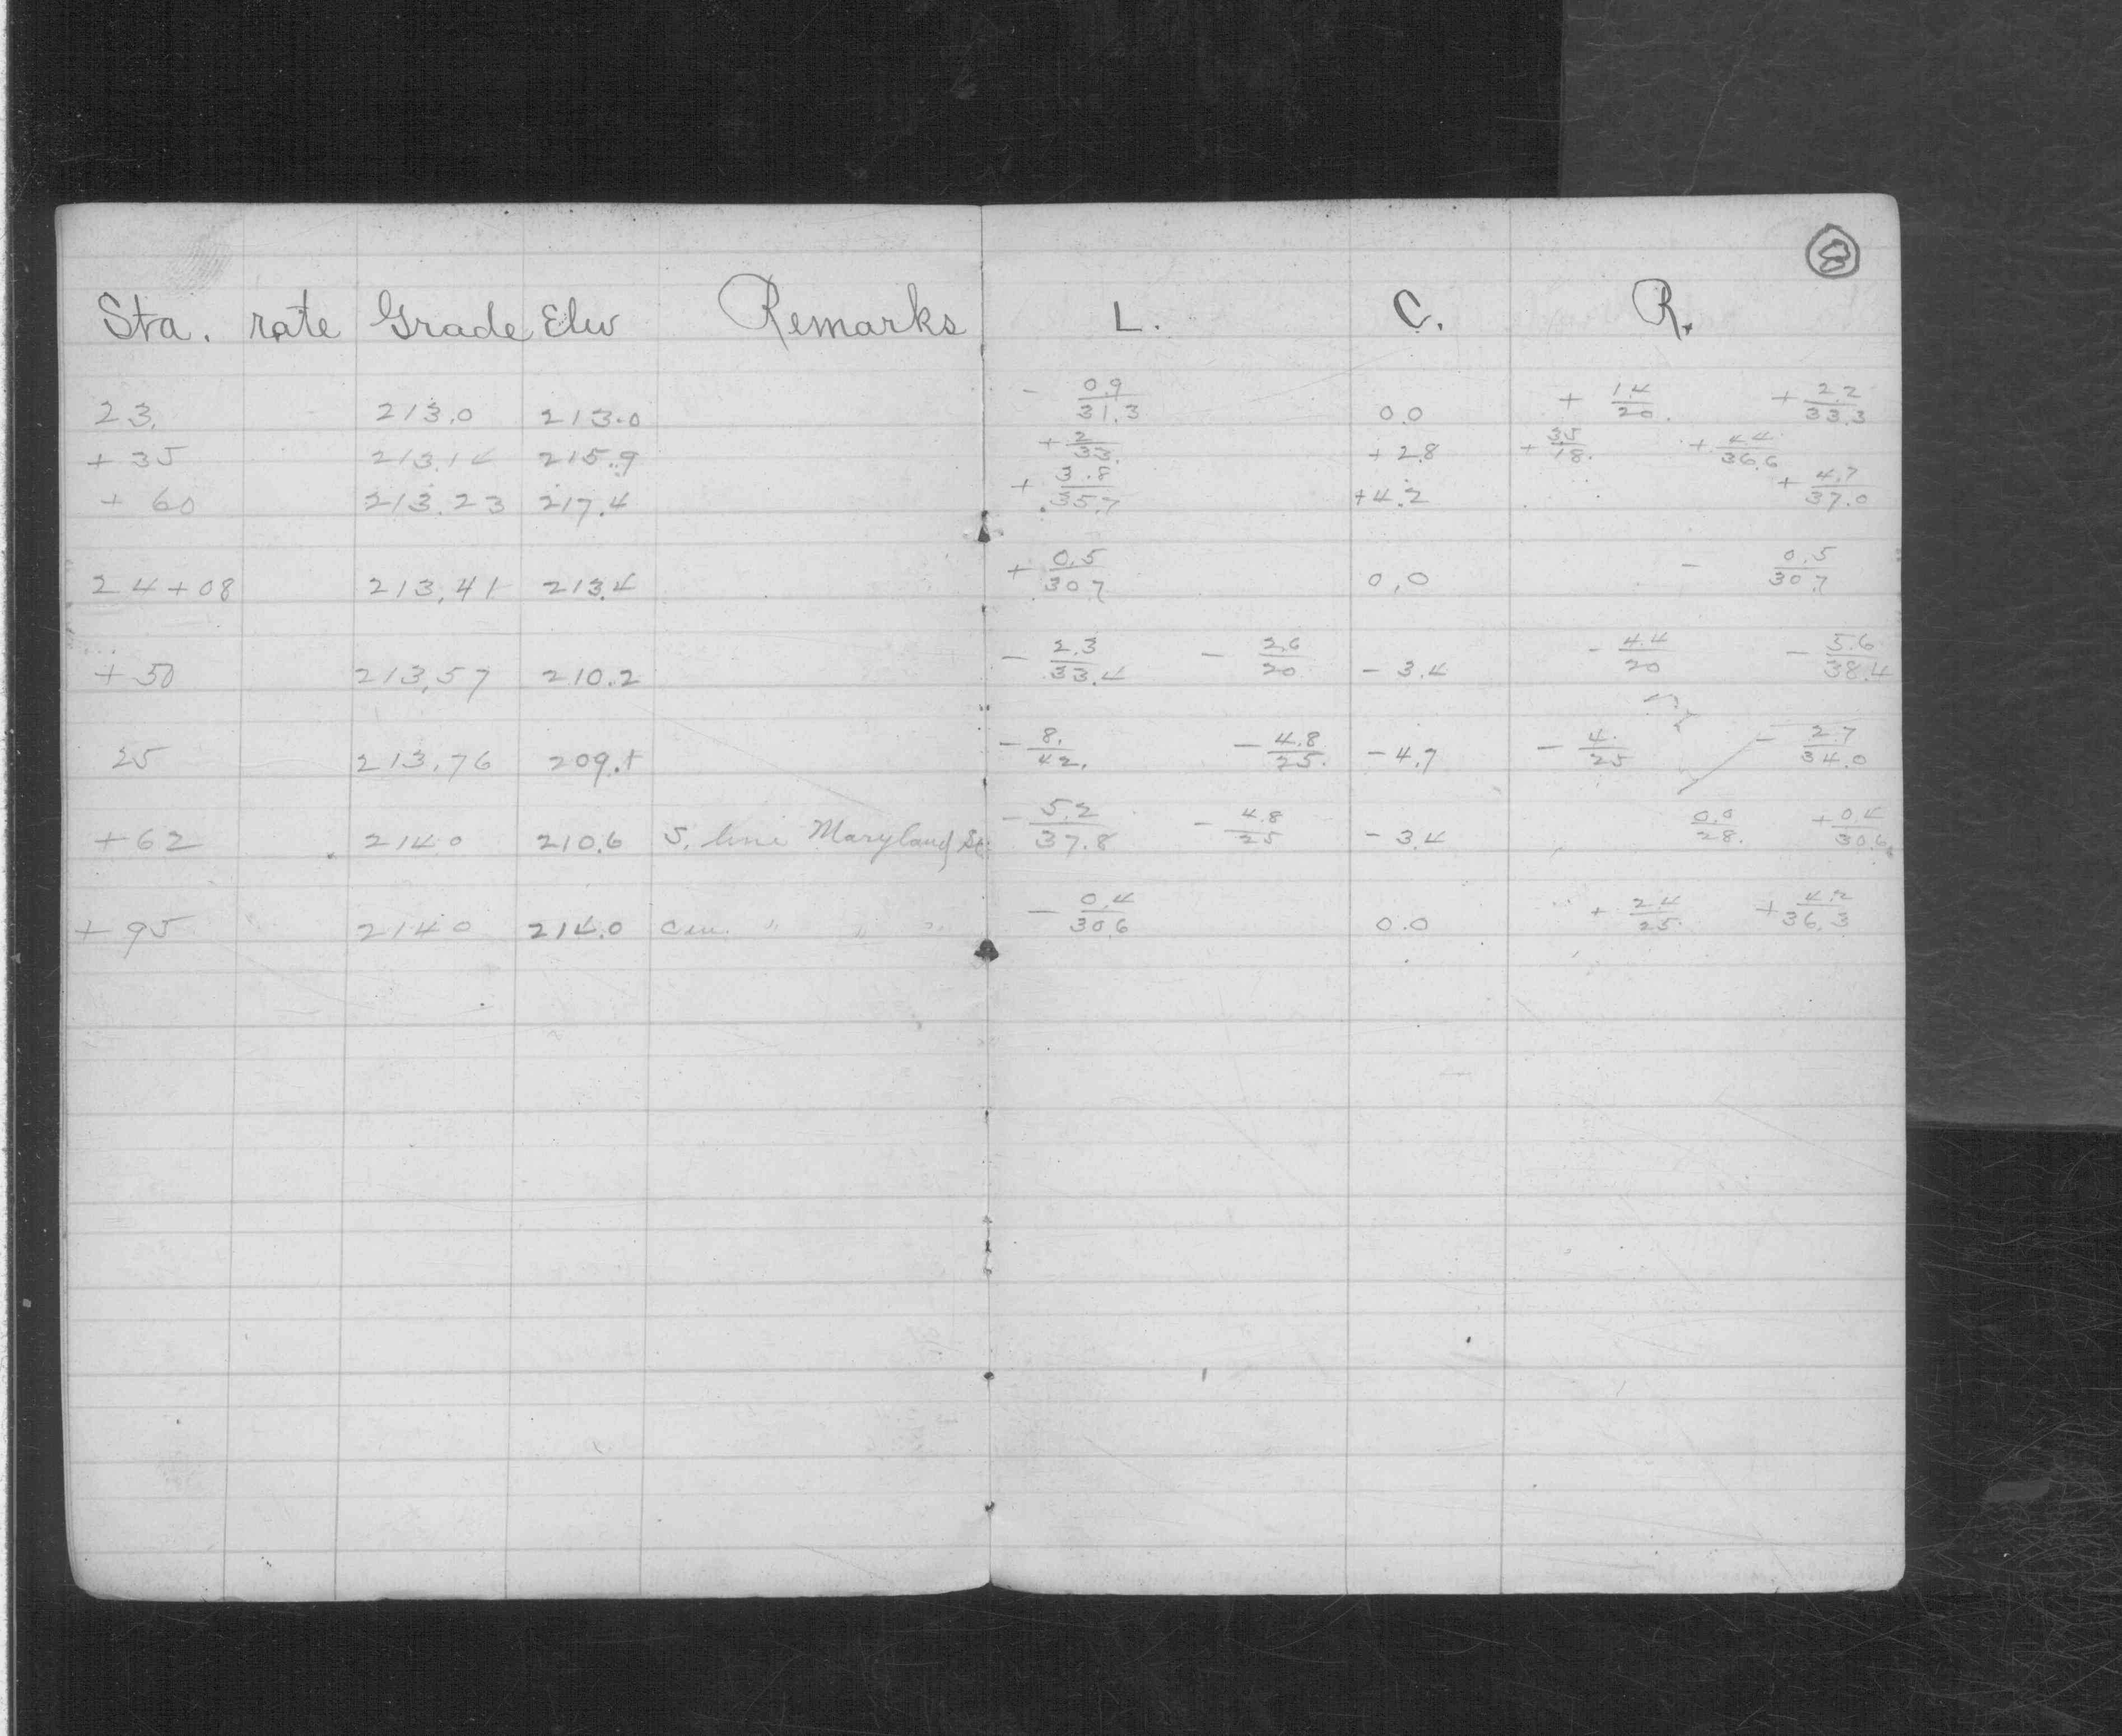 8
Sta. rate Grade Elev Remarks L. C. R.
23. 213.0 213.0 - 0.9/31.3 0.0 + 1.4/20. + 2.2/33.3
+ 35 213.14 215.9 + 2/33. + 2.8 + 3.5/18. + 4.4/36.6
+ 60 213.23 217.4 + 3.8/35.7 +4.2 + 4.7/37.0
24+08 213.41 213.4 + 0.5/30.7 0.0 - 0.5/30.7
+50 213.57 210.2 - 2.3/33.4 - 2.6/20 - 3.4 - 4.4/20 - 5.6/38.4
25 213.76 209.1 - 8./42. - 4.8/25. - 4.7 - 4./25 - 2.7/34.0
+62 214.0 210.6 S. line Maryland St. - 5.2/37.8 - 4.8/25 - 3.4 0.0/28. + 0.4/30.6
+95 214.0 214.0 Cen. " " " - 0.4/30.6 0.0 + 2.4/25. + 4.2/36.3